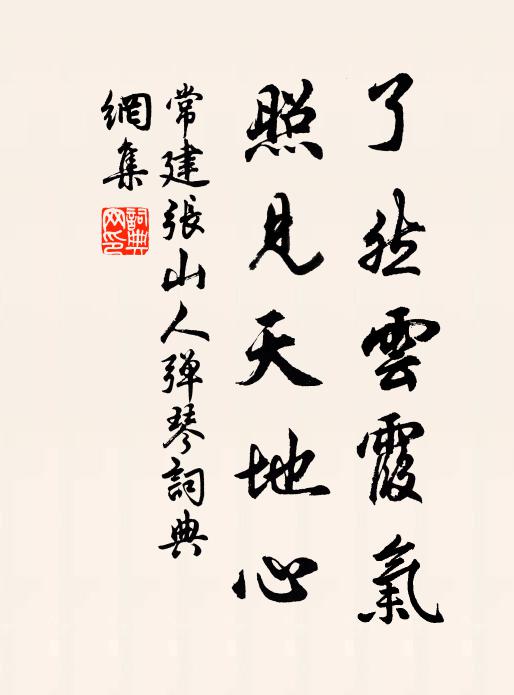 了然雲霞氣
照見天地心
常建張山人弹琴詞典
網集
詞典
网印